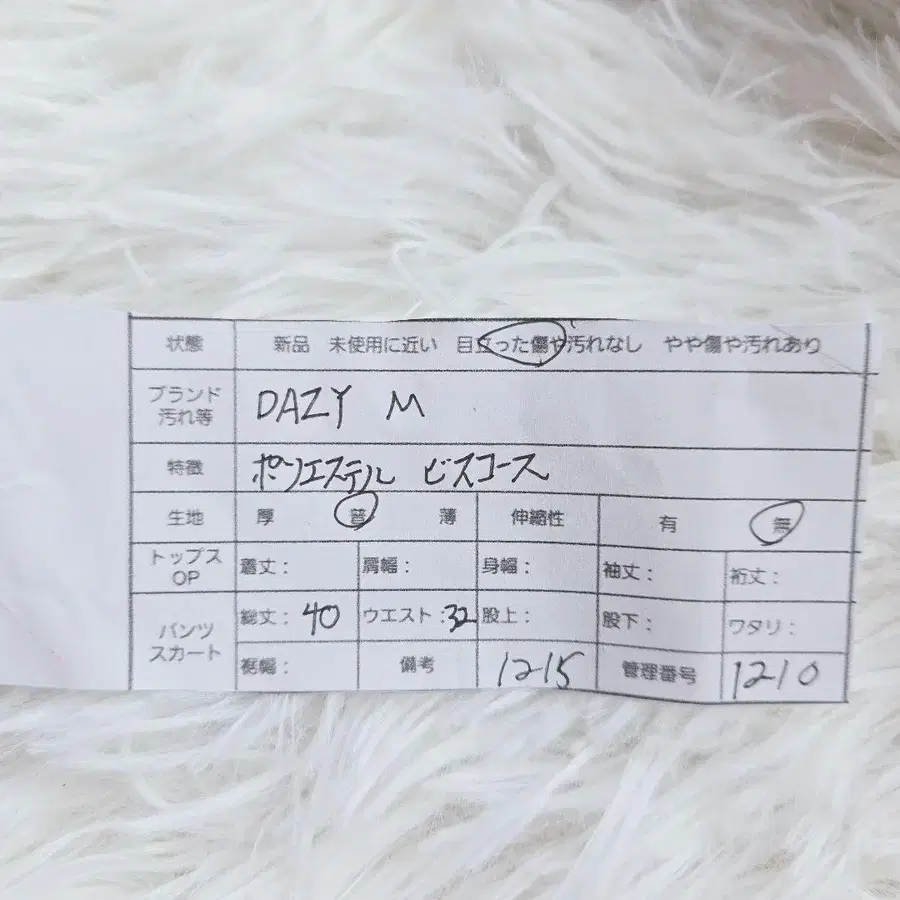 状態 新品 未使用に近い 目立った傷や汚れなし やや傷や汚れあり
ブランド 汚れ等 DAZY M
特徴 ポリエステル ビスコース
生地 厚 普 薄 伸縮性 有 無
トップス OP 着丈: 肩幅: 身幅: 袖丈: 裄丈:
パンツ スカート 総丈: 40 ウエスト: 32 股上: 股下: ワタリ:
裾幅: 備考 1215 管理番号 1210